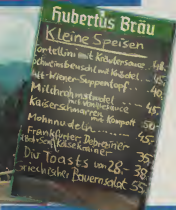 Hubertus Bräu
Kleine Speisen
Tortellini mit Kräutersauce 48.-
mit Knödel 45.-
Suppentopf 40.-
Milchrahmstrudel
mit Vanillesauce 45.-
Kaiserschmarren
mit Kompott 50.-
Mohnnudeln 45.-
Frankfurter, Debreziner
Käsekrainer 35.-
Div. Toasts von 28.- 38.-
Griechischer Bauernsalat 55.-